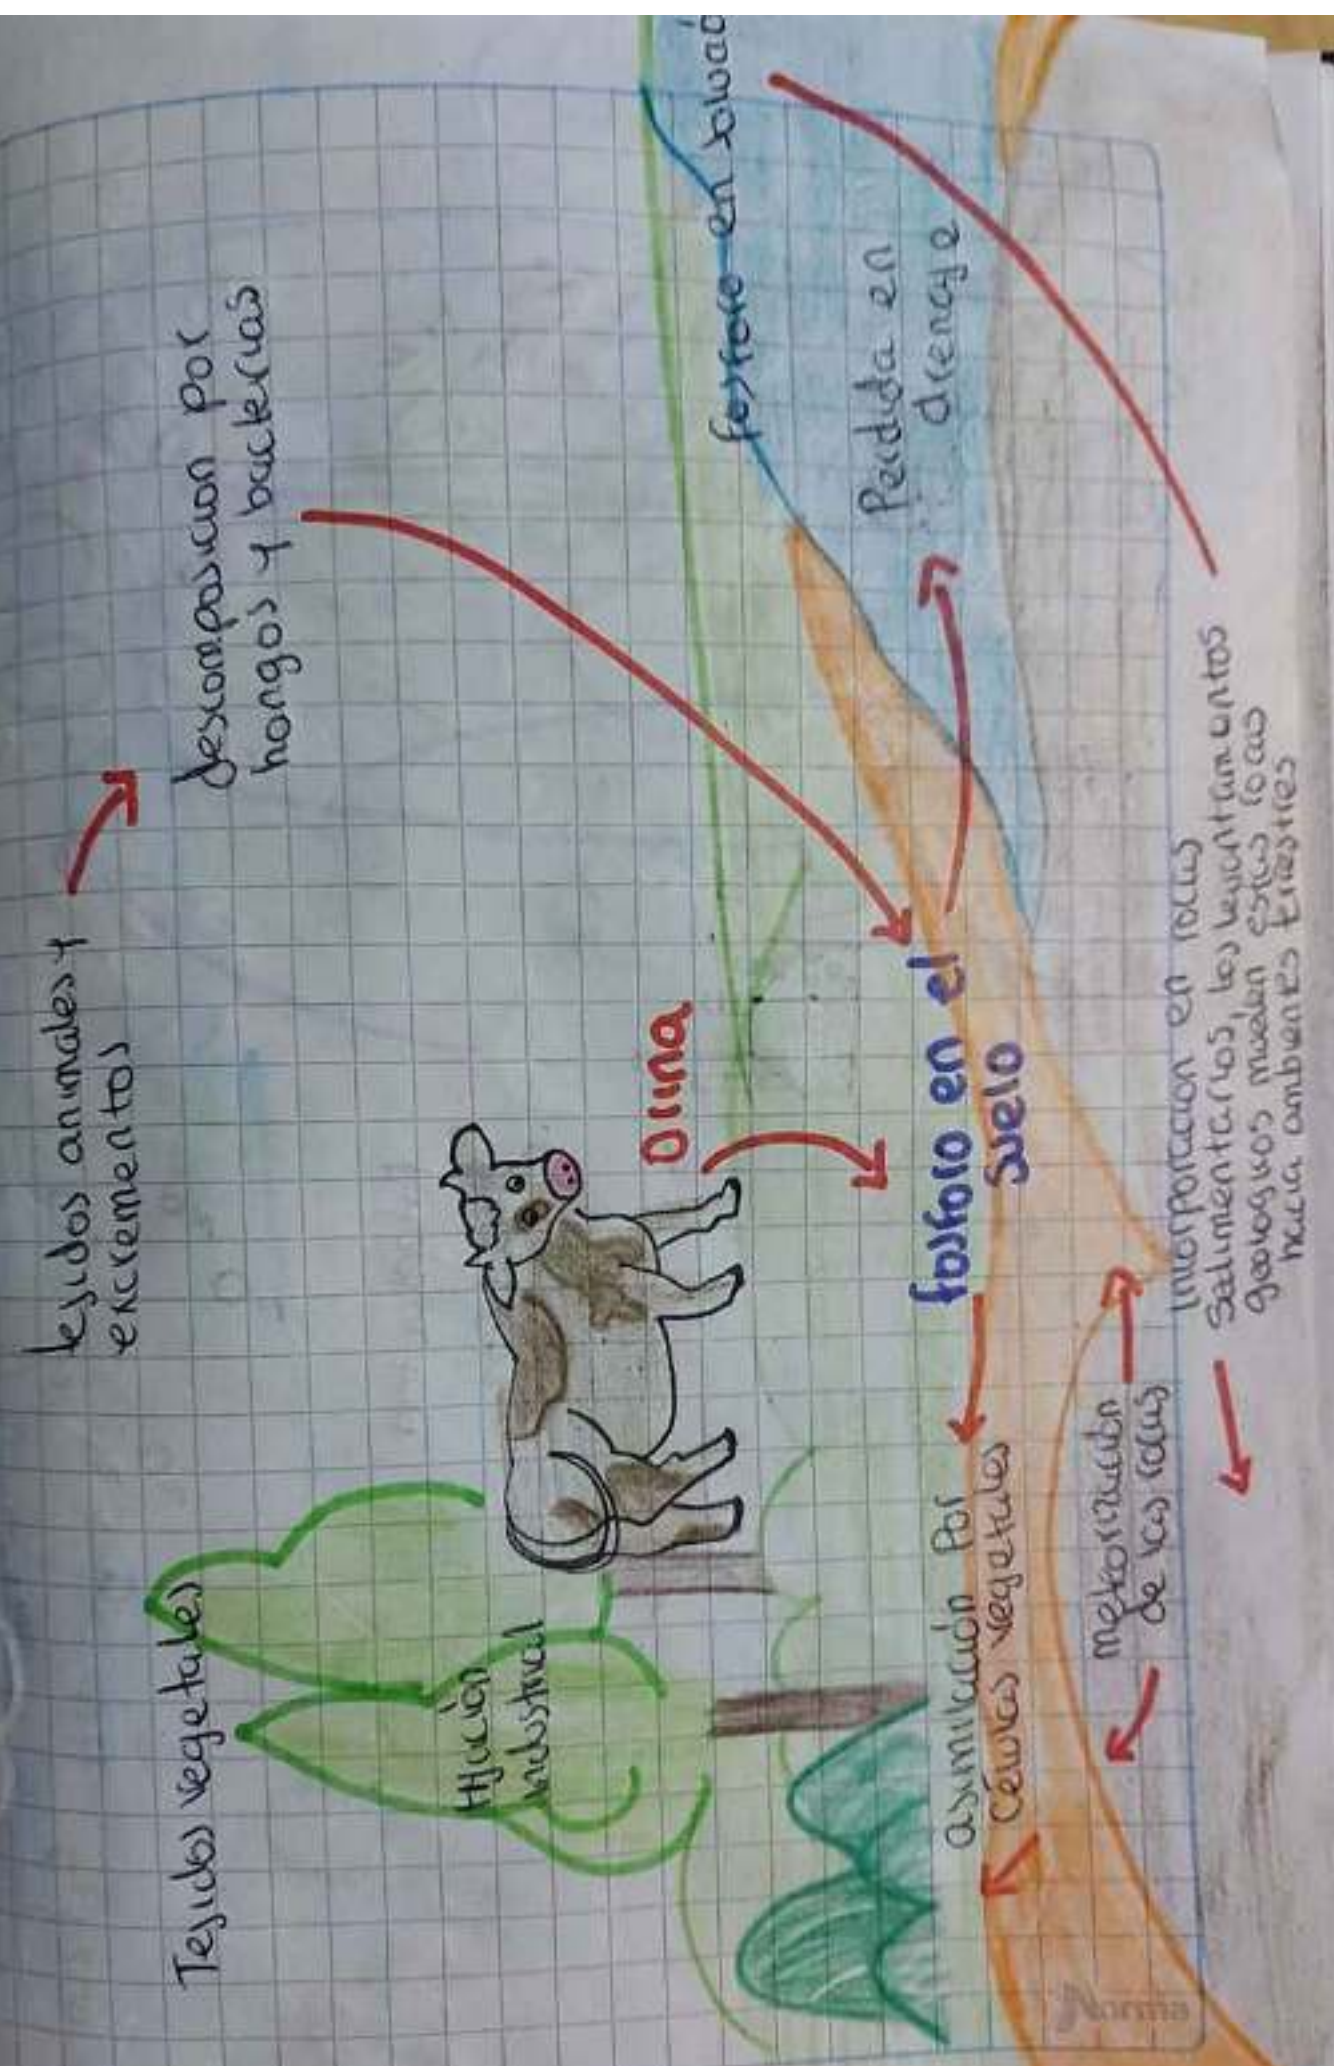 Tejidos vegetales
tejidos animales y
excrementos
descomposicion por
hongos y bacterias
industrial
Orina
fosforo en el
suelo
fosforo en solució
Perdida en
drenage
asimilación Por
Células vegetales
meteorización
de las rocas
incorporacion en rocas
Salimentarias, los levantamientos
geologicos mueven estas rocas
hacia ambientes trrestres
Norma